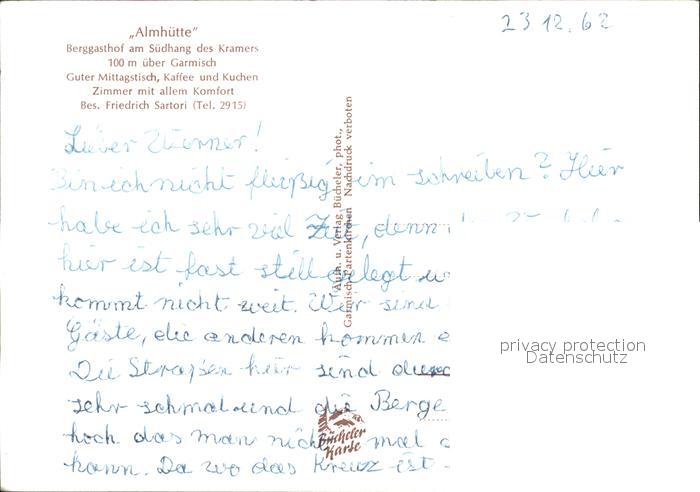 23.12.62
„Almhütte"
Berggasthof am Südhang des Kramers
100 m über Garmisch
Guter Mittagstisch, Kaffee und Kuchen
Zimmer mit allem Komfort
Bes. Friedrich Sartori (Tel. 2915)
Lieber Werner!
Bin ich nicht fleißig im schreiben? Hier
habe ich sehr viel Zeit, denn
hier ist fast still gelegt u
kommt nicht weit. Wir sind
Gäste, die anderen kommen
Die Straßen hier sind
sehr schmal und die Berge
hoch das man nicht mal
kann. Da wo das Kreuz ist
Aufn. u. Verlag Bücheler, phot.,
Garmisch-Partenkirchen Nachdruck verboten
Bücheler
Karte
privacy protection
Datenschutz